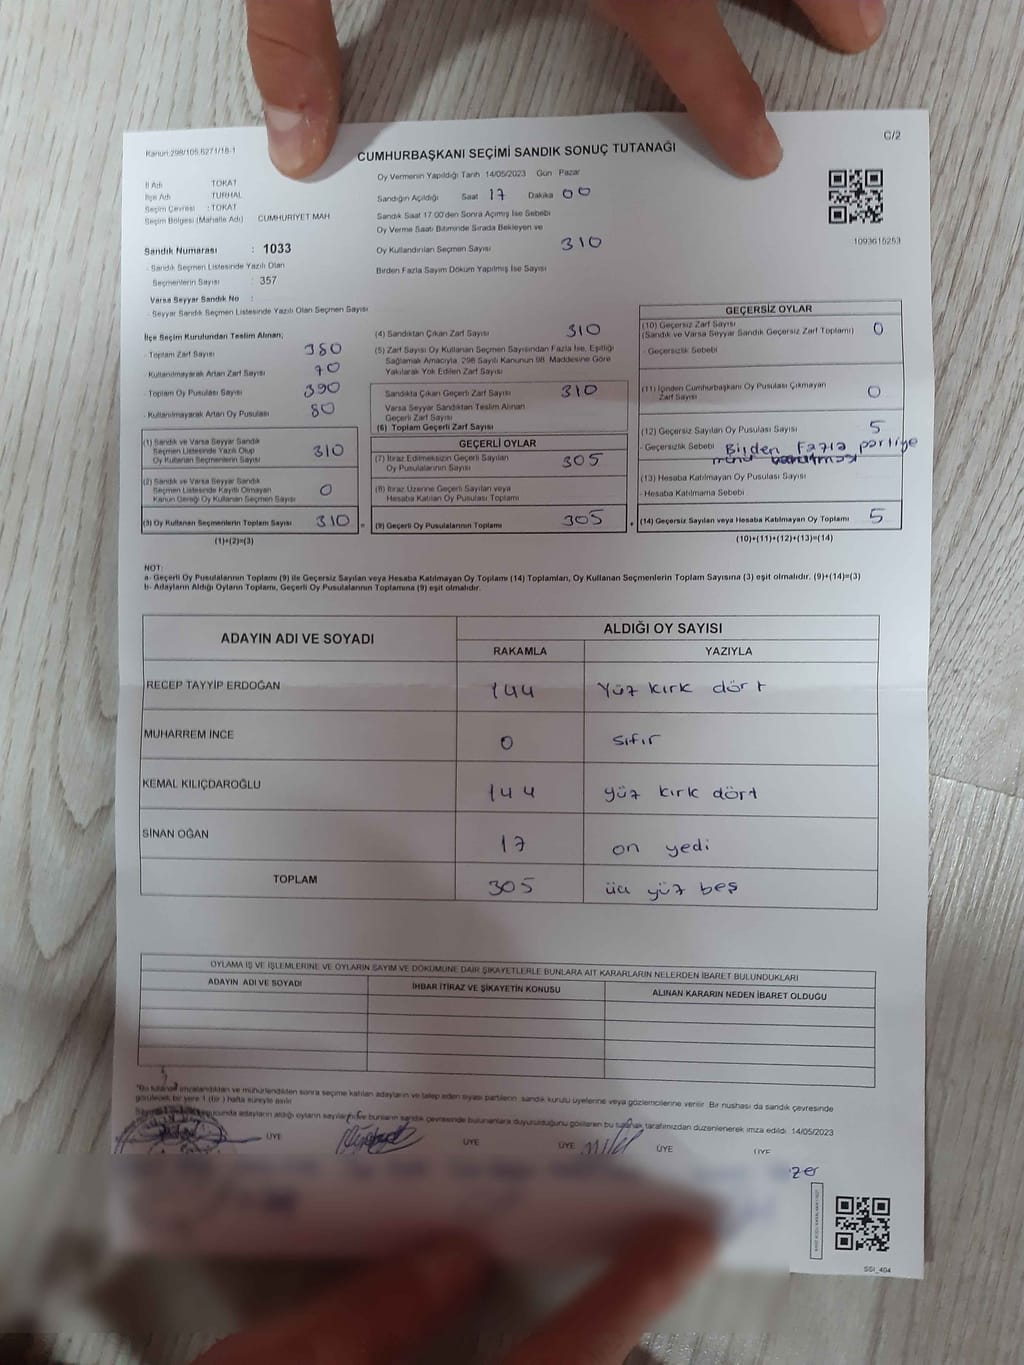 Kanun:298/105,6271/18-1
C/2
CUMHURBAŞKANI SEÇİMİ SANDIK SONUÇ TUTANAĞI
İl Adı : TOKAT
İlçe Adı : TURHAL
Seçim Çevresi : TOKAT
Seçim Bölgesi (Mahalle Adı) CUMHURİYET MAH
Sandık Numarası : 1033
- Sandık Seçmen Listesinde Yazılı Olan
Seçmenlerin Sayısı : 357
Varsa Seyyar Sandık No :
- Seyyar Sandık Seçmen Listesinde Yazılı Olan Seçmen Sayısı
Oy Vermenin Yapıldığı Tarih 14/05/2023 Gün Pazar
Sandığın Açıldığı Saat 17 Dakika 00
Sandık Saat 17 00'den Sonra Açımış İse Sebebi
Oy Verme Saati Bitiminde Sırada Bekleyen ve
Oy Kullandırılan Seçmen Sayısı 310
Birden Fazla Sayım Döküm Yapılmış İse Sayısı
1093615253
İlçe Seçim Kurulundan Teslim Alınan;
- Toplam Zarf Sayısı 380
- Kullanılmayarak Artan Zarf Sayısı 70
- Toplam Oy Pusulası Sayısı 390
- Kullanılmayarak Artan Oy Pusulası 80
(1) Sandık ve Varsa Seyyar Sandık
Seçmen Listesinde Yazılı Olup
Oy Kullanan Seçmenlerin Sayısı 310
(2) Sandık ve Varsa Seyyar Sandık
Seçmen Listesinde Kayıtlı Olmayan
Kanun Gereği Oy Kullanan Seçmen Sayısı 0
(3) Oy Kullanan Seçmenlerin Toplam Sayısı 310
(1)+(2)=(3)
(4) Sandıktan Çıkan Zarf Sayısı 310
(5) Zarf Sayısı Oy Kullanan Seçmen Sayısından Fazla İse, Eşitliği
Sağlamak Amacıyla, 298 Sayılı Kanunun 98. Maddesine Göre
Yakılarak Yok Edilen Zarf Sayısı
Sandıkta Çıkan Geçerli Zarf Sayısı 310
Varsa Seyyar Sandıktan Teslim Alınan
Geçerli Zarf Sayısı
(6) Toplam Geçerli Zarf Sayısı
GEÇERLİ OYLAR
(7) İtiraz Edilmeksizin Geçerli Sayılan
Oy Pusulalarının Sayısı 305
(8) İtiraz Üzerine Geçerli Sayılan veya
Hesaba Katılan Oy Pusulası Toplamı
(9) Geçerli Oy Pusulalarının Toplamı 305
GEÇERSİZ OYLAR
(10) Geçersiz Zarf Sayısı
(Sandık ve Varsa Seyyar Sandık Geçersiz Zarf Toplamı) 0
- Geçersizlik Sebebi
(11) İçinden Cumhurbaşkanı Oy Pusulası Çıkmayan
Zarf Sayısı 0
(12) Geçersiz Sayılan Oy Pusulası Sayısı 5
- Geçersizlik Sebebi Birden Fazla partiye
(13) Hesaba Katılmayan Oy Pusulası Sayısı
- Hesaba Katılmama Sebebi
(14) Geçersiz Sayılan veya Hesaba Katılmayan Oy Toplamı 5
(10)+(11)+(12)+(13)=(14)
NOT:
a- Geçerli Oy Pusulalarının Toplamı (9) ile Geçersiz Sayılan veya Hesaba Katılmayan Oy Toplamı (14) Toplamları, Oy Kullanan Seçmenlerin Toplam Sayısına (3) eşit olmalıdır. (9)+(14)=(3)
b- Adayların Aldığı Oyların Toplamı, Geçerli Oy Pusulalarının Toplamına (9) eşit olmalıdır.
ADAYIN ADI VE SOYADI ALDIĞI OY SAYISI
RAKAMLA YAZIYLA
RECEP TAYYİP ERDOĞAN 144 Yüz kırk dört
MUHARREM İNCE 0 sıfır
KEMAL KILIÇDAROĞLU 144 yüz kırk dört
SİNAN OĞAN 17 on yedi
TOPLAM 305 üç yüz beş
OYLAMA İŞ VE İŞLEMLERİNE VE OYLARIN SAYIM VE DÖKÜMÜNE DAİR ŞİKAYETLERLE BUNLARA AİT KARARLARIN NELERDEN İBARET BULUNDUKLARI
ADAYIN ADI VE SOYADI İHBAR İTİRAZ VE ŞİKAYETİN KONUSU ALINAN KARARIN NEDEN İBARET OLDUĞU
*Bu tutanak imzalandıktan ve mühürlendikten sonra seçime katılan adayların ve talep eden siyasi partilerin sandık kurulu üyelerine veya gözlemcilerine verilir. Bir nushası da sandık çevresinde
görülecek bir yere 1 (bir) hafta süreyle asılır
sonucunda adayların aldığı oyların sayıları ve bunların sandık çevresinde bulunanlara duyurulduğunu gösteren bu tutanak tarafımızdan düzenlenerek imza edildi 14/05/2023
ÜYE ÜYE ÜYE ÜYE ÜYE
zer
SSİ_404